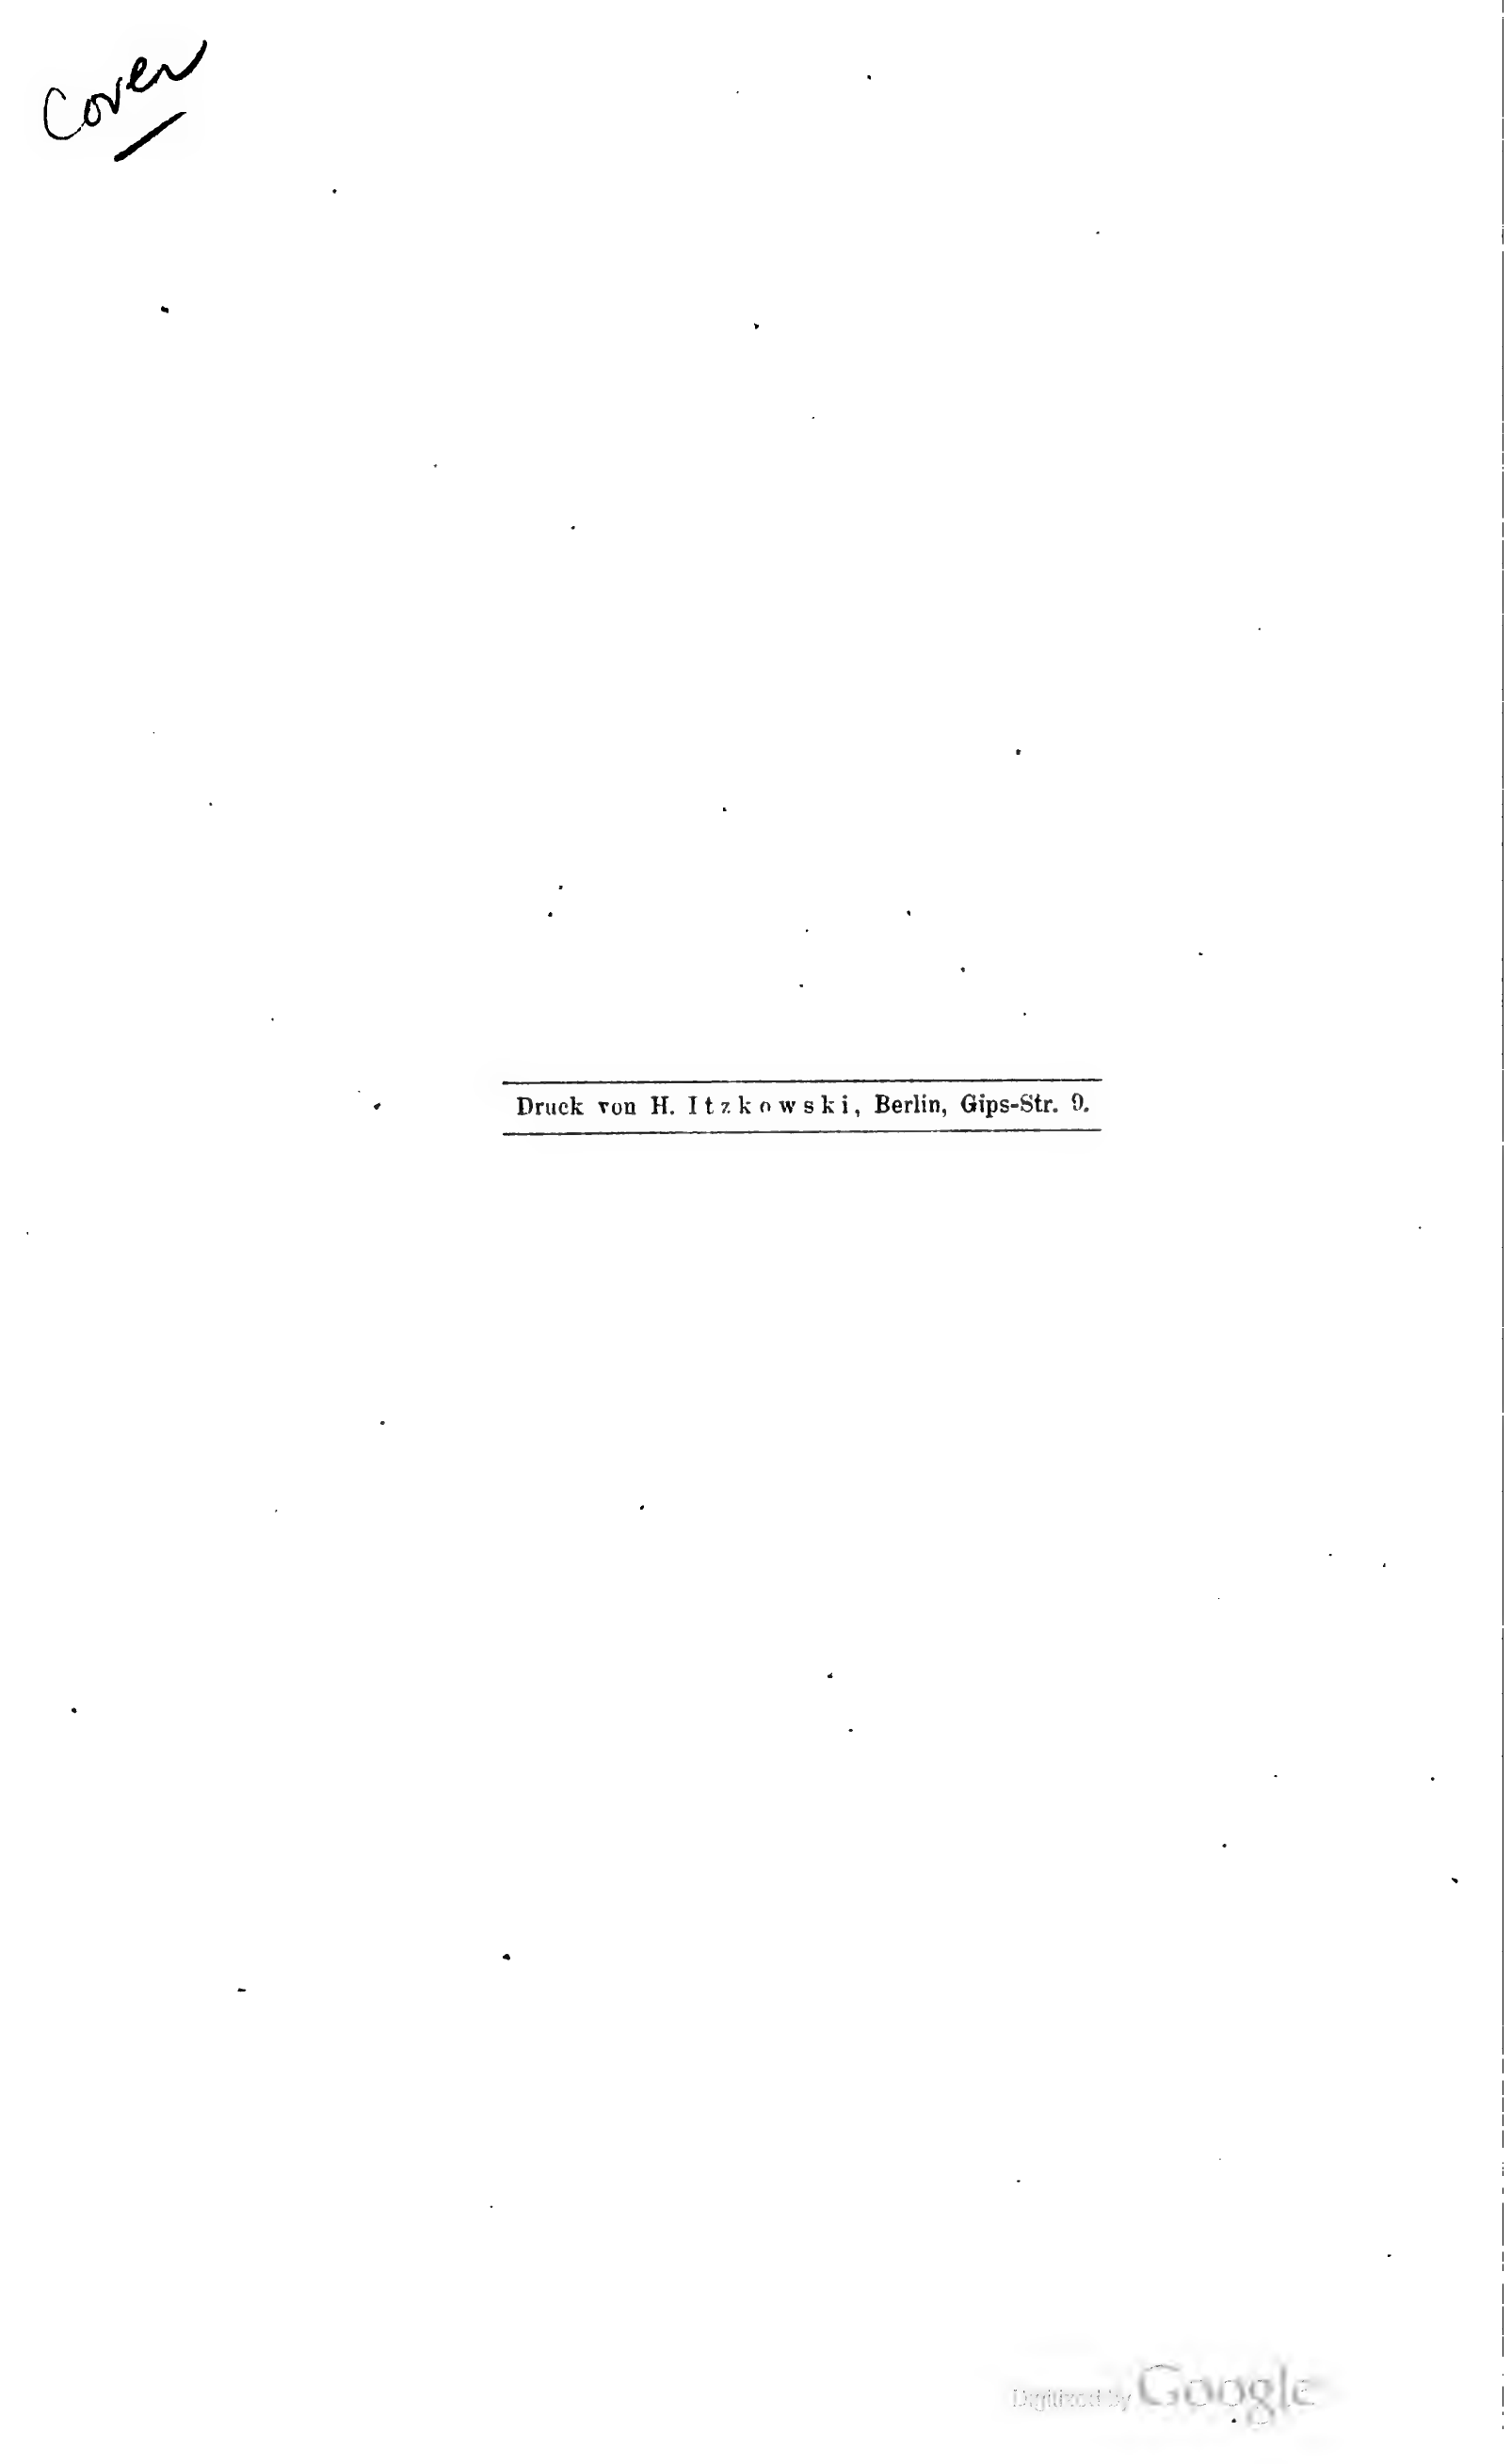 Cover
Druck von H. Itzkowski, Berlin, Gips-Str. 9.
Digitized by Google